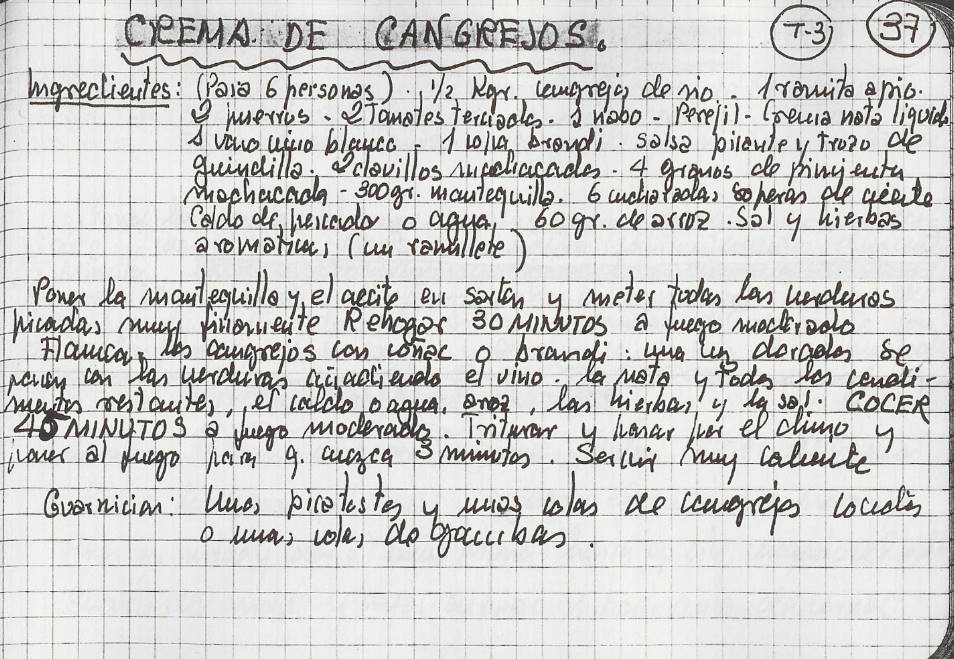 CREMA DE CANGREJOS. T-3 37
Ingredientes: (Para 6 personas). 1/2 Kgr. cangrejos de rio - 1 ramita apio.
2 puerros - 2 Tomates - 1 nabo - Perejil - Crema nata liquida
1 vaso vino blanco - 1 brandi. salsa picante y trozo de
guindilla. 2 clavillos machacados. 4 granos de pimienta
machacada - 300 gr. mantequilla. 6 cucharadas soperas de aceite
Caldo de pescado o agua. 60 gr. de arroz. Sal y hierbas
aromaticas (un ramillete)
Poner la mantequilla y el aceite en sartén y meter todas las verduras
picadas muy finamente Rehogar 30 MINUTOS a fuego moderado
Flamear los cangrejos con coñac o brandi. una vez dorados se
ponen con las verduras añadiendo el vino. la nata y todos los condi-
mentos restantes, el caldo o agua, arroz, las hierbas y la sal. COCER
45 MINUTOS a fuego moderado. Triturar y pasar por el chino y
poner al fuego para q. cuezca 3 minutos. Servir muy caliente
Guarnicion: Unos picatostes y unas colas de cangrejos cocidos
o unas colas de gambas.